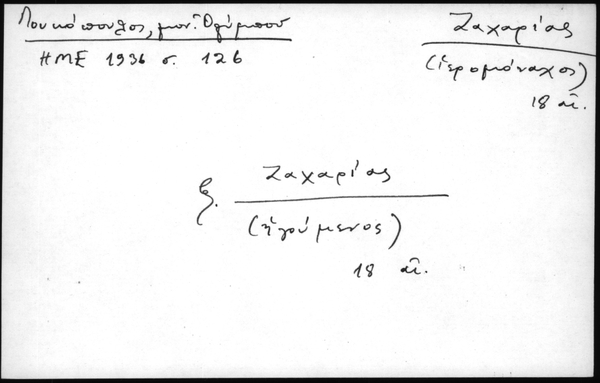 Λουκόπουλος, μον. Ὀλύμπου
ΗΜΕ 1936 σ. 126
Ζαχαρίας
(ἱερομόναχος)
18 αἰ.
Ζαχαρίας
(ἡγούμενος)
18 αἰ.